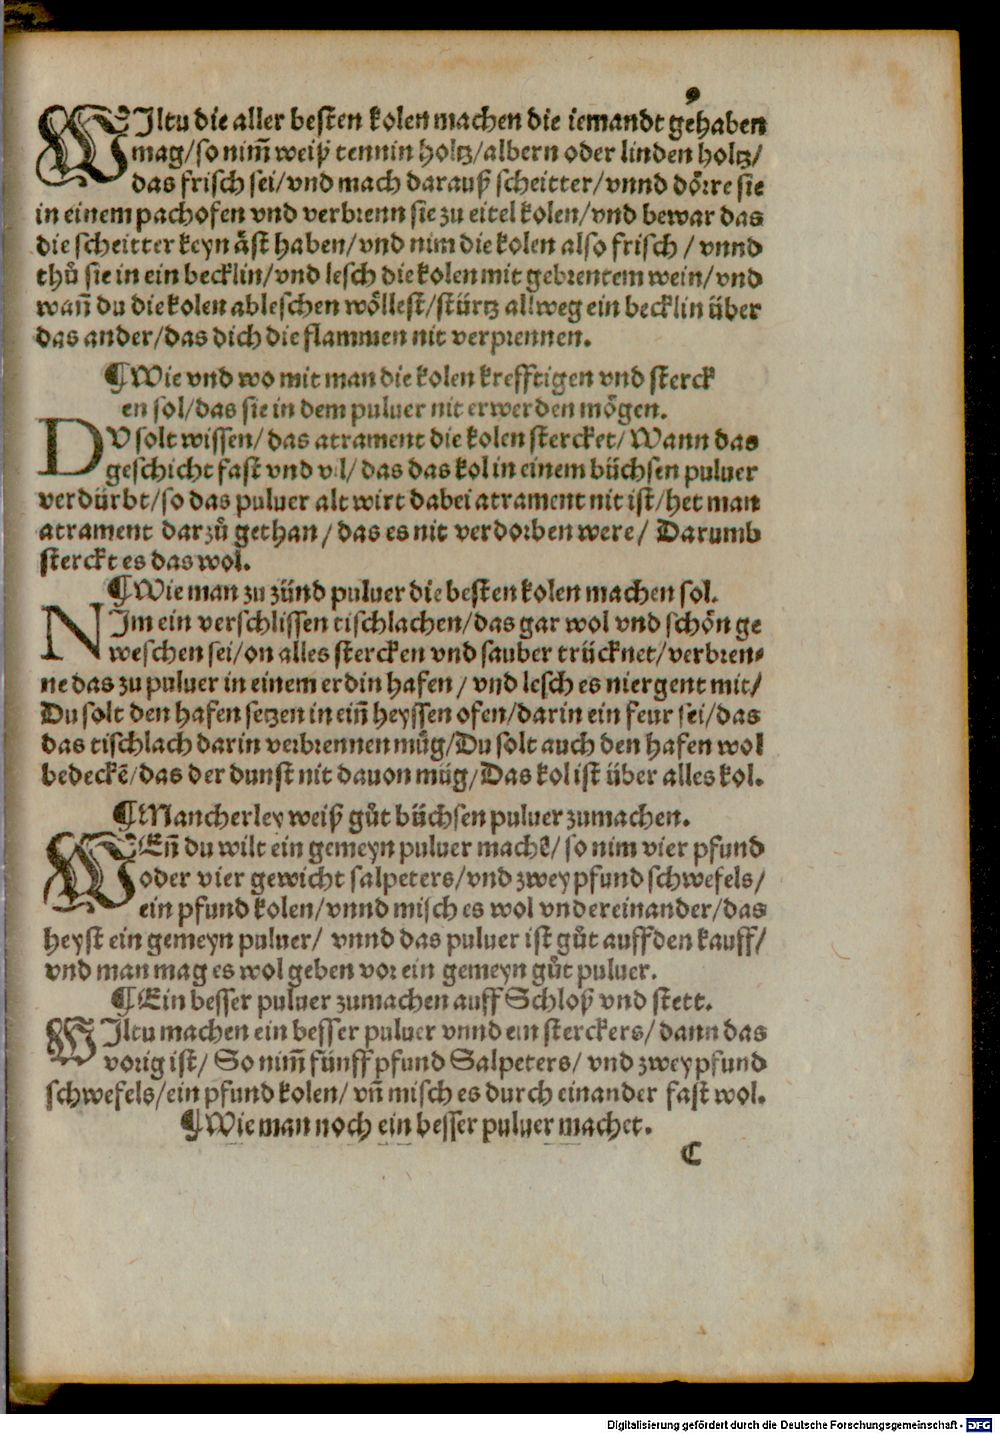 9
WIltu die aller besten kolen machen die iemandt gehaben
mag/so nim̄ weiß tennin holtz/albern oder linden holtz/
das frisch sei/vnd mach darauß scheitter/vnnd dörre sie
in einem pachofen vnd verbrenn sie zu eitel kolen/vnd bewar das
die scheitter keyn äst haben/vnd nim die kolen also frisch / vnnd
thů sie in ein becklin/vnd lesch die kolen mit gebrentem wein/vnd
wan̄ du die kolen ableschen wöllest/stürtz allweg ein becklin über
das ander/das dich die flammen nit verprennen.
¶Wie vnd wo mit man die kolen krefftigen vnd sterck
en sol/das sie in dem puluer nit erwerden mögen.
DV solt wissen/ das atrament die kolen stercket/ Wann das
geschicht fast vnd vil/ das das kol in einem büchsen puluer
verdürbt/so das puluer alt wirt dabei atrament nit ist/het man
atrament darzů gethan/das es nit verdorben were/ Darumb
sterckt es das wol.
¶Wie man zu zünd puluer die besten kolen machen sol.
NIm ein verschlissen tischlachen/das gar wol vnd schön ge
weschen sei/on alles stercken vnd sauber trücknet/verbren⸗
ne das zu puluer in einem erdin hafen / vnd lesch es niergent mit/
Du solt den hafen setzen in ein̄ heyssen ofen/darin ein feur sei/das
das tischlach darin verbrennen müg/Du solt auch den hafen wol
bedeckē/das der dunst nit dauon müg/Das kol ist über alles kol.
¶Mancherley weiß gůt büchsen puluer zumachen.
WEn̄ du wilt ein gemeyn puluer machē/ so nim vier pfund
oder vier gewicht salpeters/vnd zwey pfund schwefels/
ein pfund kolen/vnnd misch es wol vndereinander/das
heyst ein gemeyn puluer/ vnnd das puluer ist gůt auff den kauff/
vnd man mag es wol geben vor ein gemeyn gůt puluer.
¶Ein besser puluer zumachen auff Schloß vnd stett.
WIltu machen ein besser puluer vnnd ein sterckers/ dann das
vorig ist/ So nim̄ fünff pfund Salpeters/ vnd zwey pfund
schwefels/ein pfund kolen/ vn̄ misch es durch einander fast wol.
¶Wie man noch ein besser puluer machet.
C
Digitalisierung gefördert durch die Deutsche Forschungsgemeinschaft - DFG